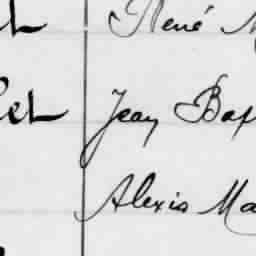 René
Jean Bap
Alexis Ma